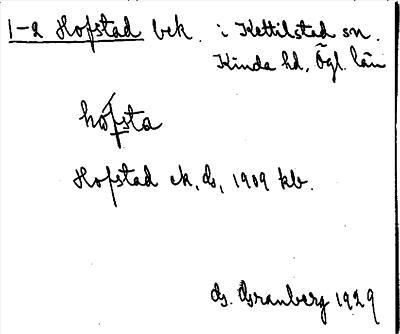 1-2 Hofstad bek. i Kettilstad sn.
Kinda hd. Ögl. län
hófsta
Hofstad ek. ds, 1909 kb.
G. Granberg 1929